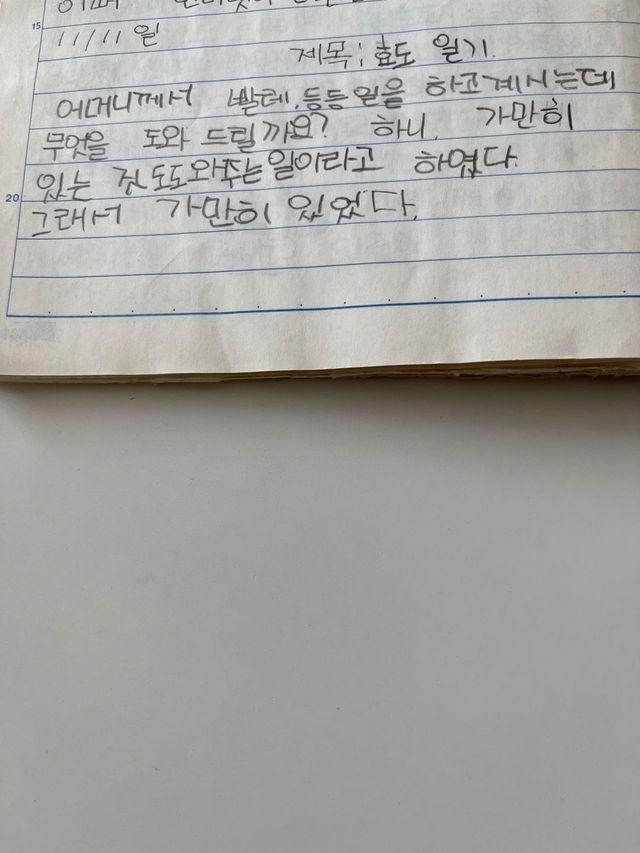 15
11/11일
제목; 효도 일기.
어머니께서 빨레, 등등 일을 하고계시는데
무엇을 도와 드릴까요? 하니, 가만히
있는 것도도와주는일이라고 하였다.
20
그래서 가만히 있었다.